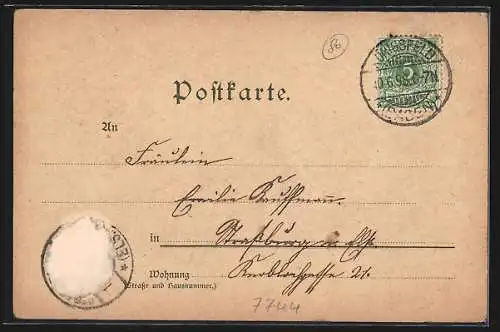 86
KÖNIGSFELD
5
(BADEN)
Postkarte.
An
Fräulein
Emilie Kauffmann.
in Straßburg i/ Els.
Wohnung Knoblochgasse 21.
(Straße und Hausnummer.)
(ELS.)
7744